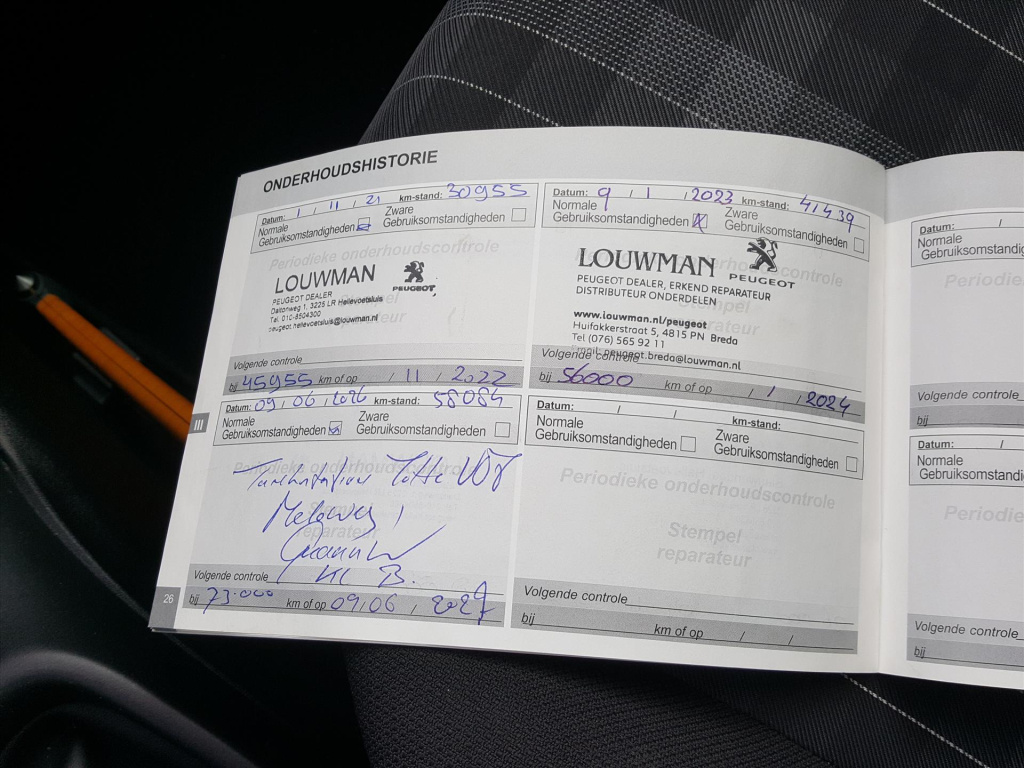 ONDERHOUDSHISTORIE
Datum: 1 / 11 / 21 km-stand: 30955
Normale Gebruiksomstandigheden
Zware Gebruiksomstandigheden
Periodieke onderhoudscontrole
LOUWMAN
PEUGEOT
PEUGEOT DEALER
Daltonweg 1, 3225 LR Hellevoetsluis
Tel. 010-8504300
peugeot.hellevoetsluis@louwman.nl
reparateur
Volgende controle
bij 45955 km of op / 11 / 2022
Datum: 9 / 1 / 2023 km-stand: 41439
Normale Gebruiksomstandigheden
Zware Gebruiksomstandigheden
LOUWMAN
PEUGEOT
PEUGEOT DEALER, ERKEND REPARATEUR
DISTRIBUTEUR ONDERDELEN
Stempel
reparateur
www.louwman.nl/peugeot
Huifakkerstraat 5, 4815 PN Breda
Tel (076) 565 92 11
Email: peugeot.breda@louwman.nl
Volgende controle
bij 56000 km of op / 1 / 2024
Datum: 09 / 06 / 2026 km-stand: 58084
Normale Gebruiksomstandigheden
Zware Gebruiksomstandigheden
Periodieke onderhoudscontrole
Stempel
reparateur
Volgende controle
bij 73.000 km of op 09/06 / 2027
Datum: / / km-stand:
Normale Gebruiksomstandigheden
Zware Gebruiksomstandigheden
Periodieke onderhoudscontrole
Stempel
reparateur
Volgende controle
bij km of op / /
III
26
Datum: /
Normale
Gebruiksomstandigheden
Periodieke
Volgende controle
bij
Datum: /
Normale
Gebruiksomstandigheden
Periodieke
Volgende controle
bij